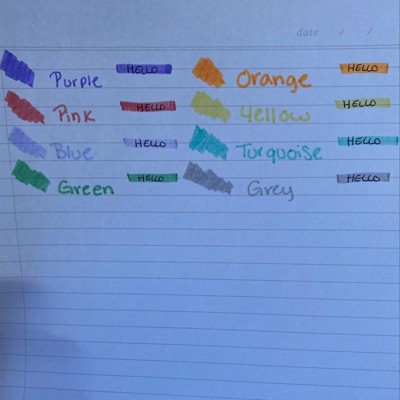 date / /
Purple HELLO Orange HELLO
Pink HELLO Yellow HELLO
Blue HELLO Turquoise HELLO
Green HELLO Grey HELLO